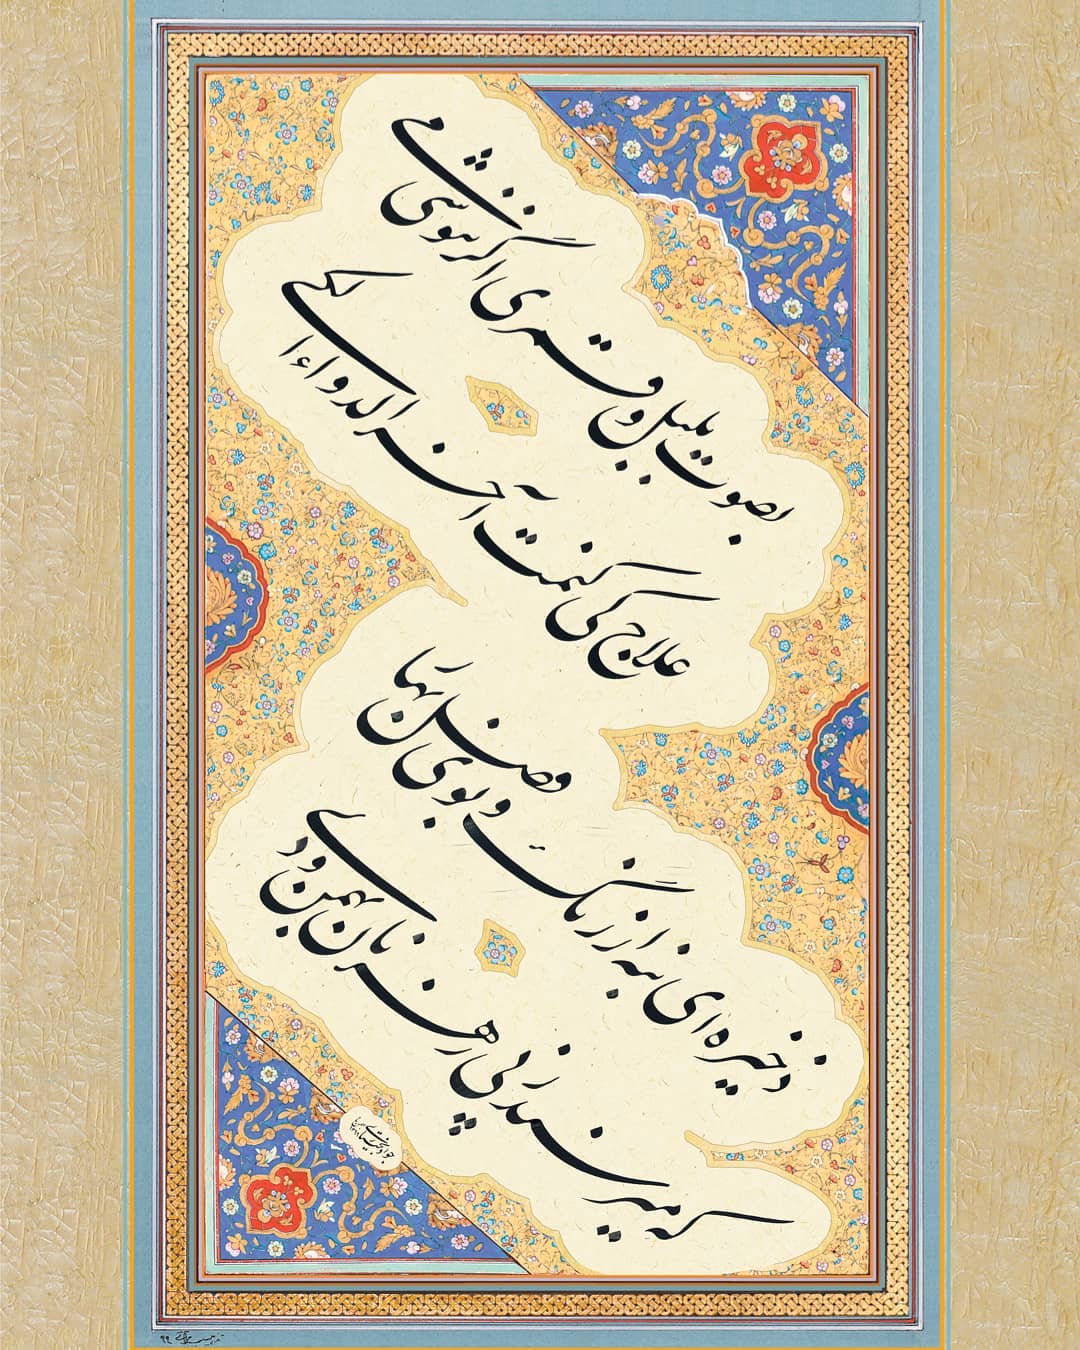 بصوت بلبل و قمری اگر ننوشی می
علاج کی کنمت آخر الدواء الکی
ذخیره ای بنه از رنگ و بوی فصل بهار
که میرسند ز پی رهزنان بهمن و دی
جواد بختیاری